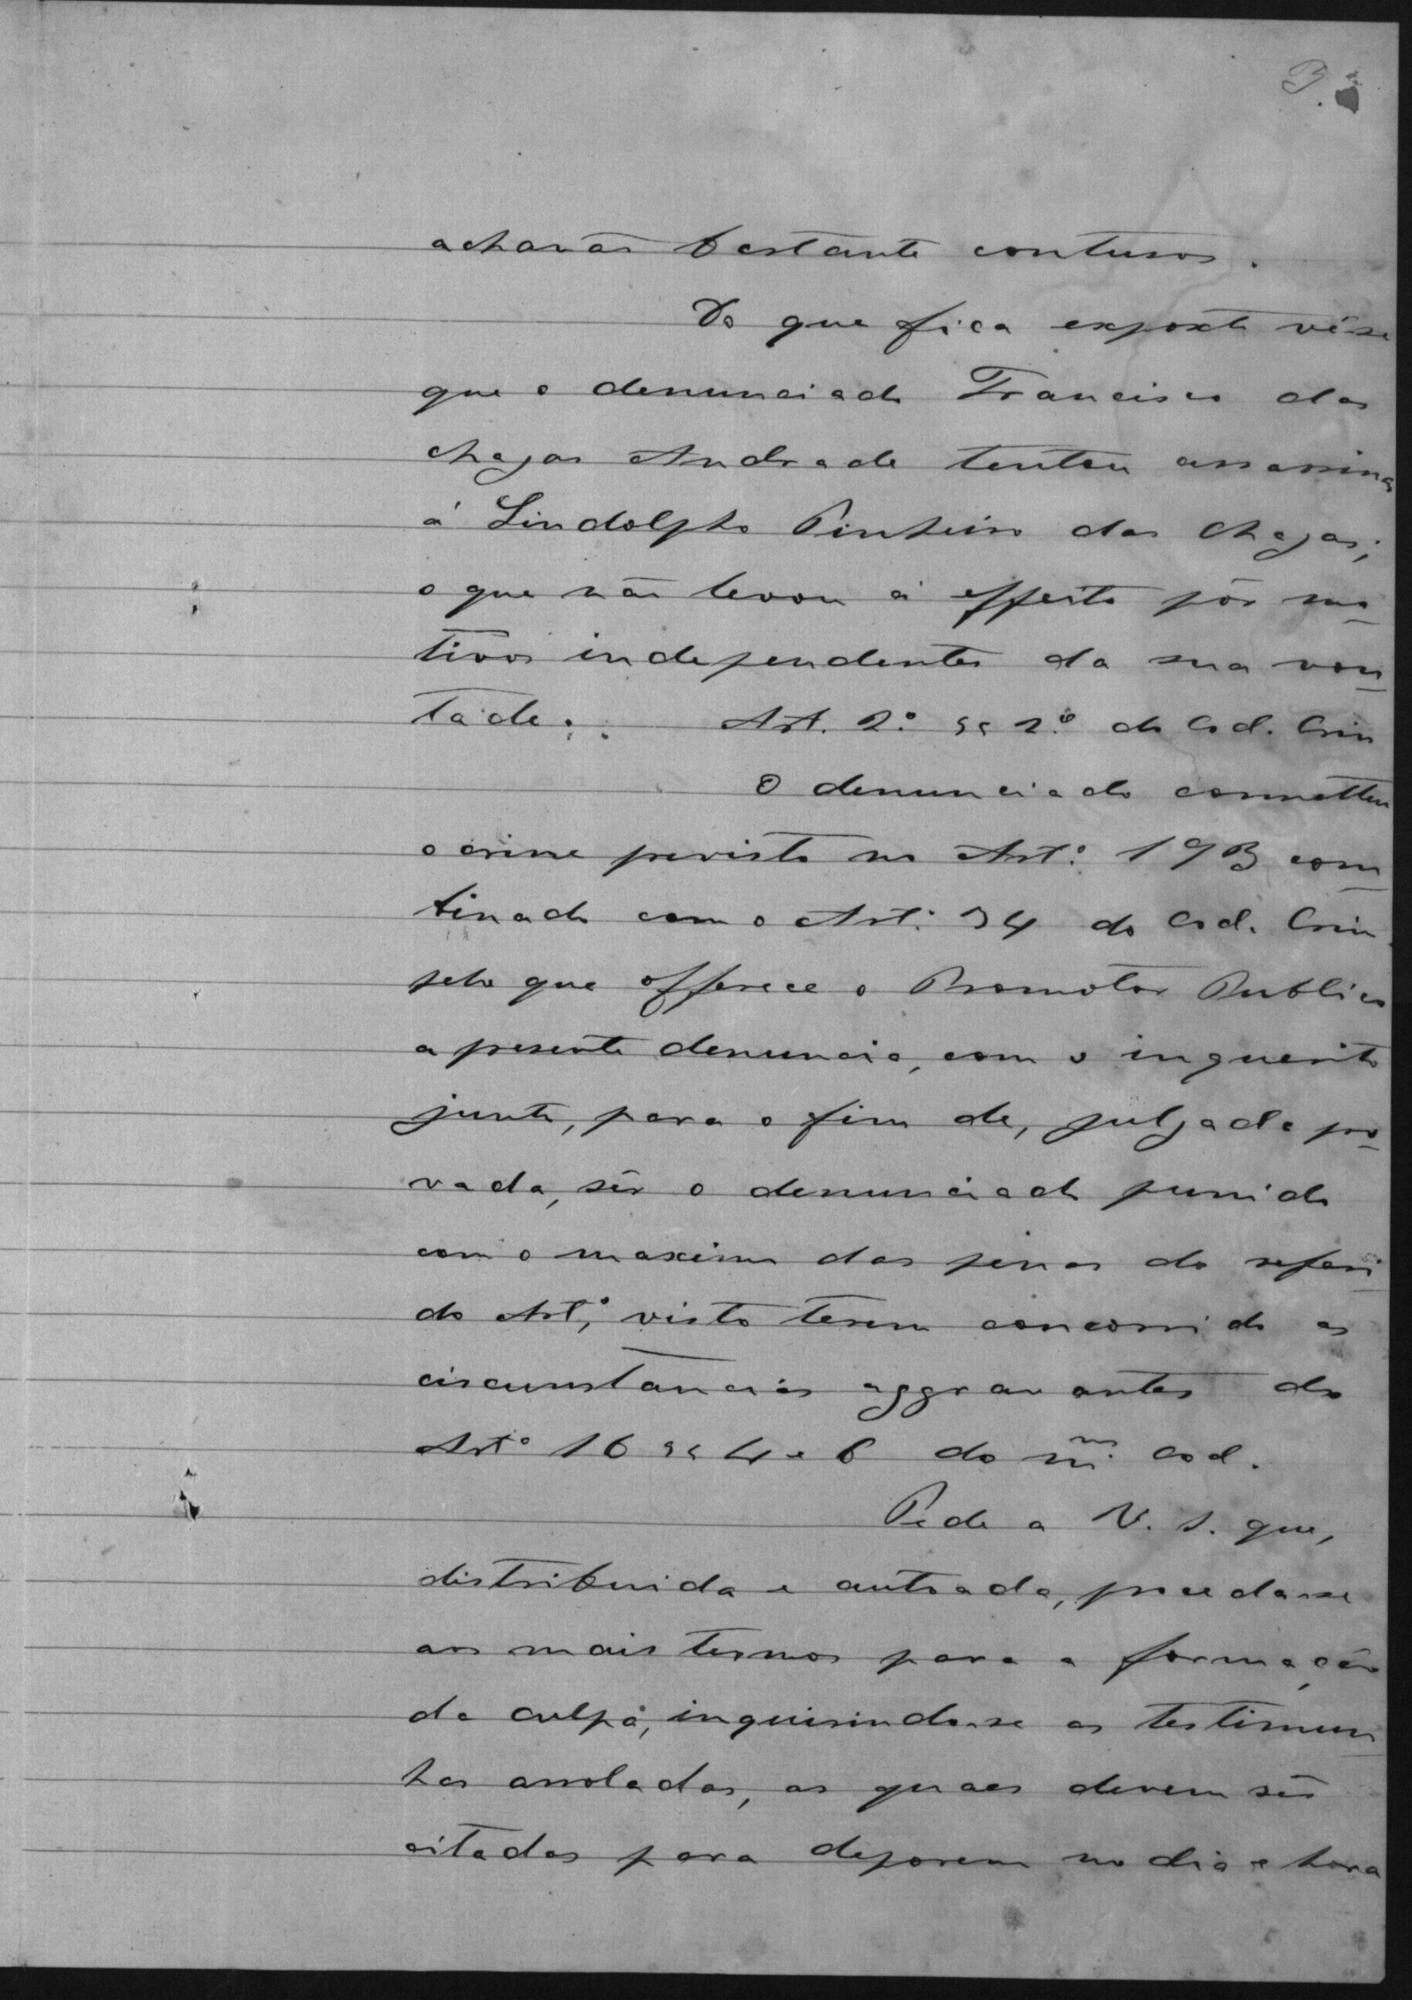 3.
achavão bastante contusos.
Do que fica exposto vê-se
que o denunciado Francisco das
Chagas Andrade tentou assassinar
á Lindolpho Pinheiro das Chagas;
o que não levou á effeito pôr mo
tivos independentes da sua von
tade. Art. 2º §§ 2º do Cod. Crim
O denunciado commetteu
o crime previsto no Artº 193 com
binado com o Artº 34 do Cod. Crim.
pelo que offerece o Promotor Publico
a presente denuncia, com o inquerito
junto, para o fim de, julgada pro
vada, sêr o denunciado punido
com o maximo das penas do referi
do Artº, visto terem concorrido as
circunstancias aggravantes do
Artº 16 §§ 4 e 6 do mmº Cod.
Pede a V. S. que,
distribuida e autoada, proceda-se
aos mais termos para a formação
da culpa, inquirindo-se as testimun
has arroladas, as quaes devem sêr
citadas para deporem no dia e hora